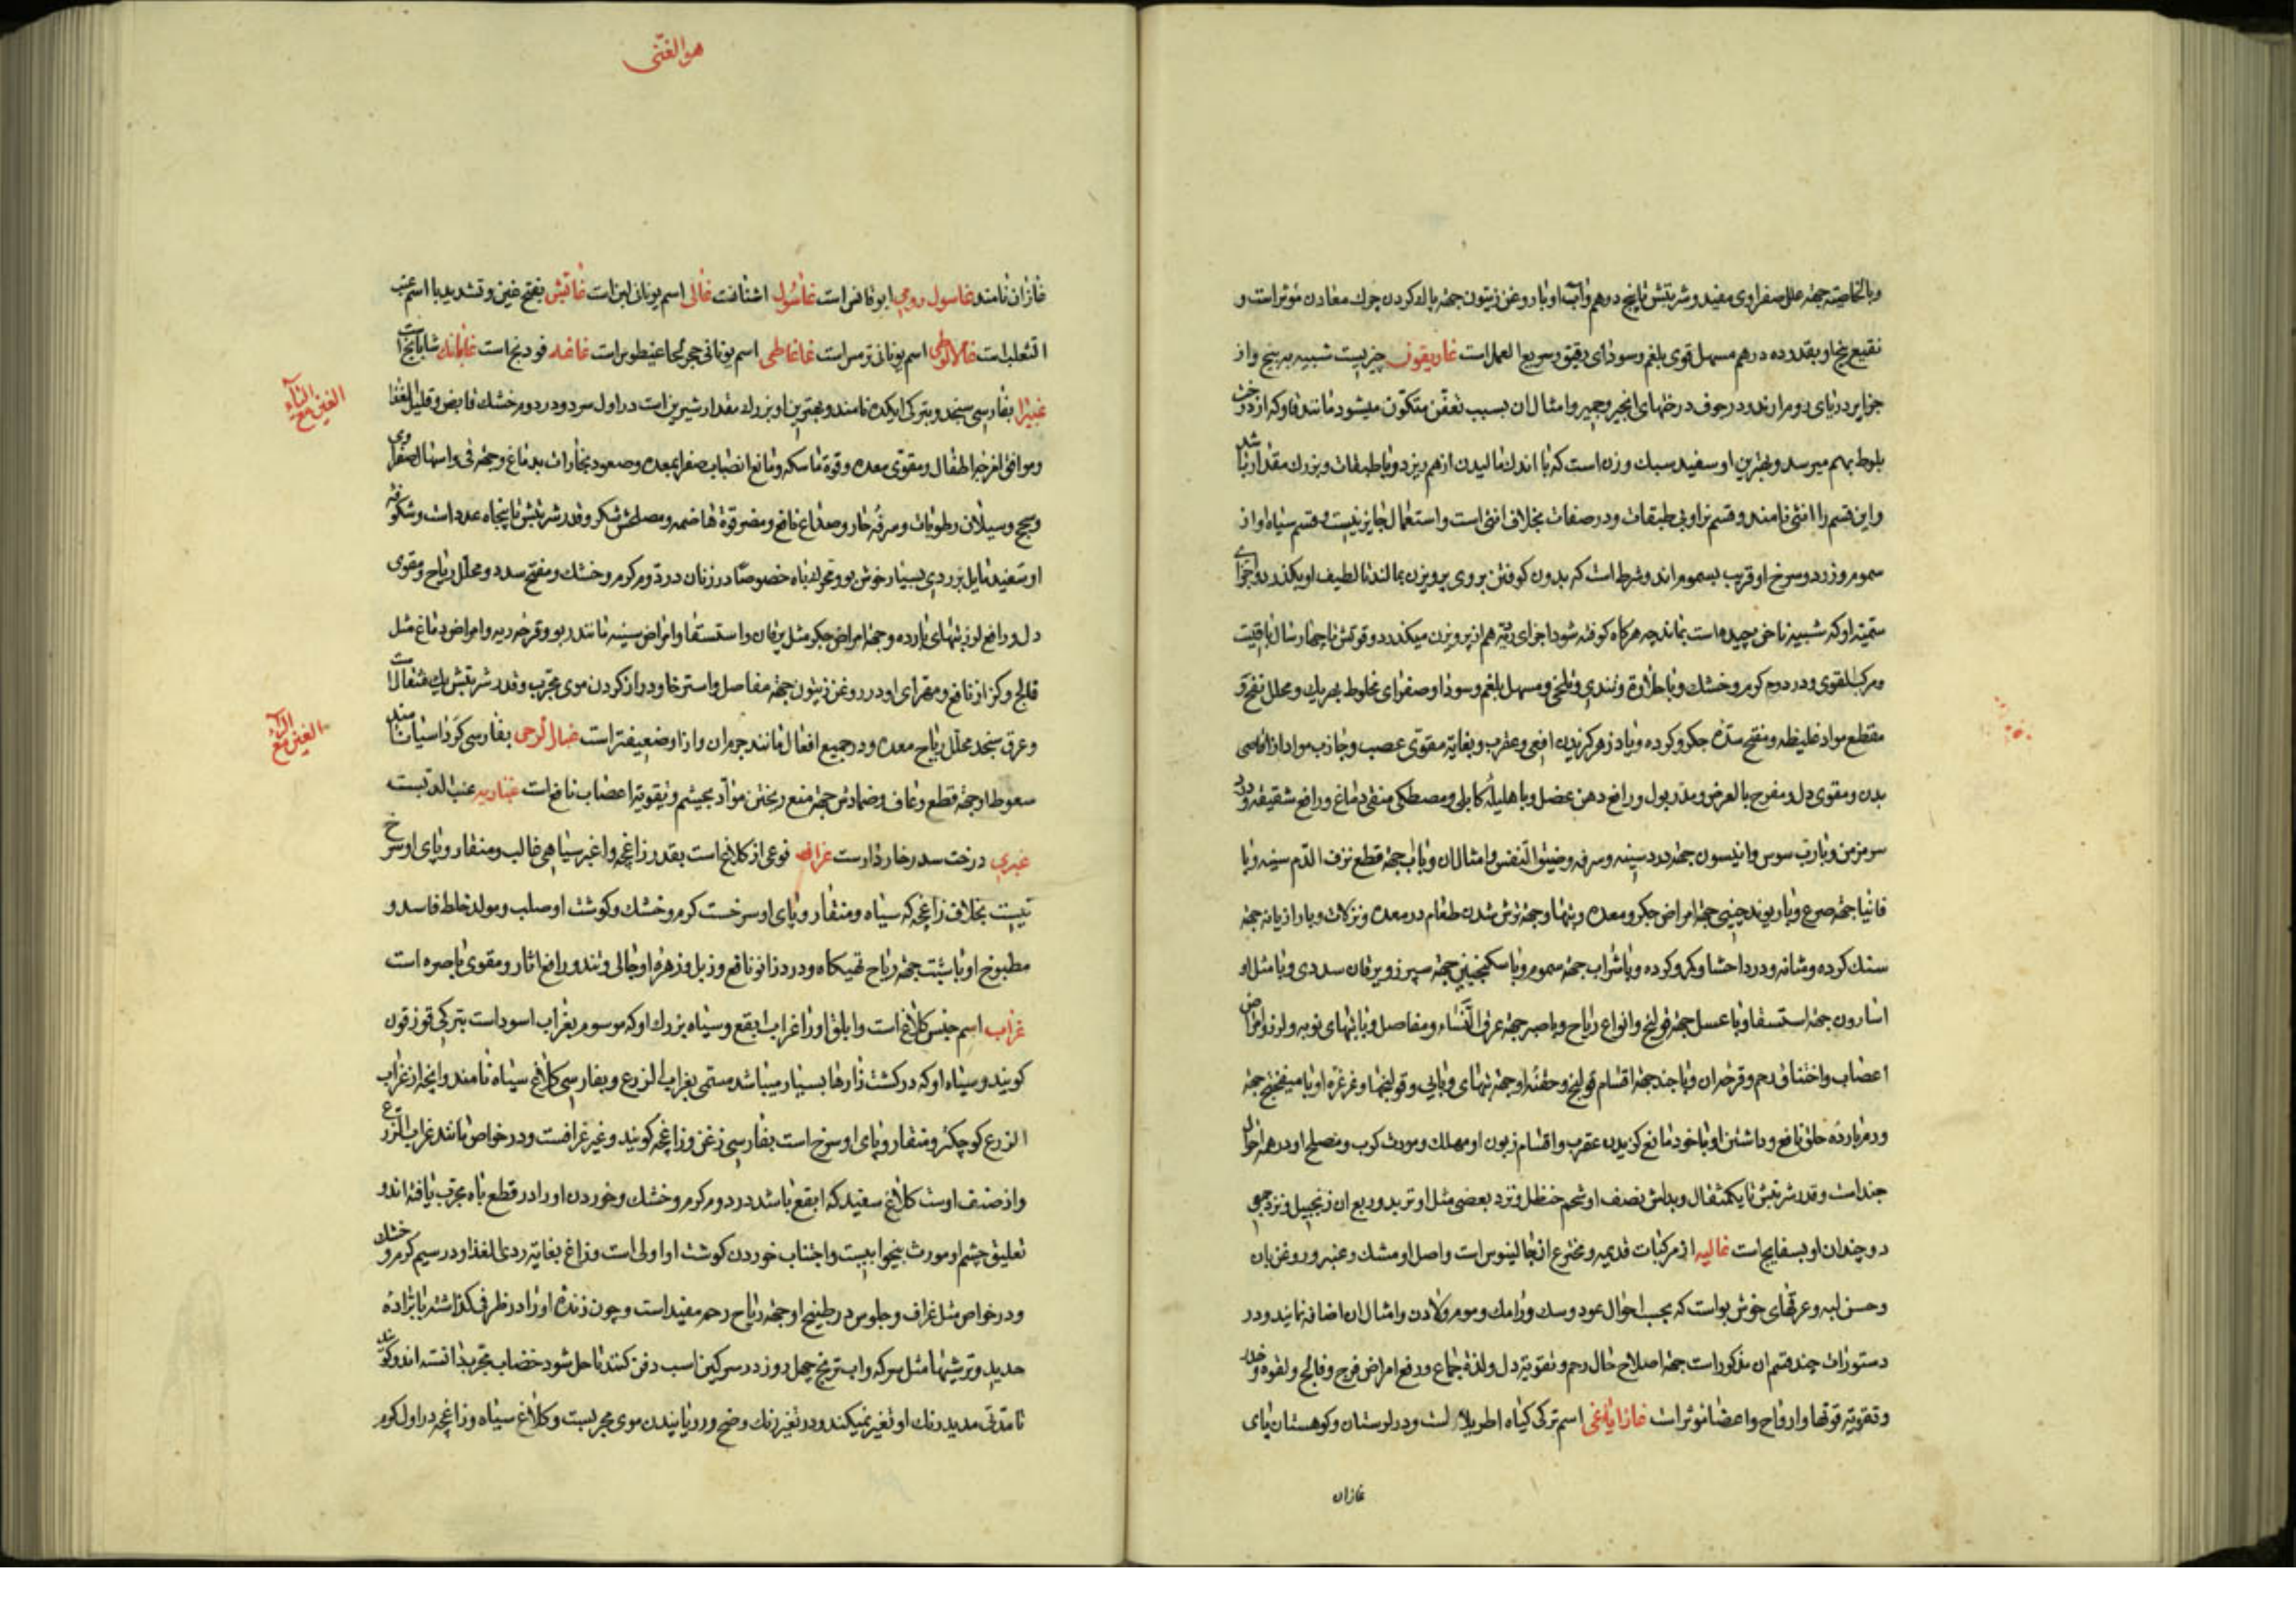 وبالخاصیته جهة علل صفراوی مفید و شربتش تا پنج درهم و آب او با روغن زیتون جهة پاک کردن چرک معادن موثر است و
نقیع پنج او بقدر ده درهم مسهل قوی بلغم و سودای رقیق و سریع العمل است غاریقون چیزیست شبیه به بیخ و از
جزایر دریای روم ارند و در جوف درختهای انجیر و جمیز و امثال ان بسبب تعفن متکون میشود مانند قاو که از درخت
بلوط بهم میرسد و بهترین او سفید سبک وزن است که با اندک مالیدن از هم ریزد و با طبقات و بزرک مقدار باشد
و این قسم را انثی نامند و قسم نر او بی طبقات و در صفات بخلاف انثی است و استعمال جایز نیست و قسم سیاه او از
سموم و زرد و سرخ او قریب بسموم اند و شرط است که بدون کوفتن بر وی پرویزن بمالند تا لطیف او بکذرد و اجزای
سمیته او که شبیه بناخن چیده است بماند چه هرکاه کوفته شود اجزای ردیه هم از پرویزن میکذرد و قوتش تا چهار سال باقیست
و مرکب القوی و در دوم کرم و خشک و با حلاوة و تندی و تلخی و مسهل بلغم و سودا و صفرای مخلوط بهر یک و محلل نفخ و
مقطع مواد غلیظه و مفتح سدّه جکر و کرده و پادزهر کزیدن افعی و عقرب و بغایة مقوی عصب و جاذب مواد از اقاصی
بدن و مقوی دل و مفرح بالعرض و مدر بول و رافع دهن عضل و با هلیله کابلی و مصطکی منقی دماغ و رافع شقیقه و درد
سر مزمن و با رب سوس و انیسون جهة درد سینه و سرفه و ضیق النفس و امثال ان و با اب جهة قطع نزف الدم سینه و با
فانیا جهة صرع و با ریوند چینی جهة امراض جکر و معده و تبها و جهة ترش شدن طعام در معده و نزلات و با رازیانه جهة
سنک کرده و مثانه و درد احشا و کمر و کرده و با شراب جهة سموم و با سکنجبین جهة سپرز و یرقان سددی و با مثل او
اسارون جهة استسقا و با عسل جهة قولنج و انواع ریاح و با صبر جهة عرق النساء و مفاصل و با تبهای نوبه و لرز و امراض
اعصاب و اختناق رحم و قرحه ان و با جند جهة اقسام قولنج و حقنه او جهة تبهای وبایی و قولنجها و غرغره او با میفختج جهة
ورم بارده حلق نافع و داشتن او با خود مانع کزیدن عقرب و اقسام زبون او مهلک و مورث کرب و مصلح او در همه احوال
جند است و قدر شربتش تا یکمثقال و بدلش نصف او شحم حنظل و نزد بعضی مثل او تربد و ربع ان زنجبیل و نزد جمعی
دو چندان او بسفایج است غالیه از مرکبات قدیمه و مخترع ان جالینوس است و اصل او مشک و عنبر و روغن بان
و حسن لبه و عرقهای خوش بو است که بحسب احوال عود و سک و رامک و موم و لادن و امثال ان اضافه نمایند و در
دستورات چند قسم ان مذکور است جهة اصلاح حال رحم و تقویة دل و لذة جماع و دفع امراض فرج و فالج و لقوه و خدر
و تقویة قوتها و ارواح و اعضا موثر است غازایاغی اسم ترکی کیاه اطریلال است و در لرستان و کوهستان پای
غازان
هو الغنی
غازان نامند غاسول رومی ابوقانس است غاسول اشنانست غالی اسم یونانی لبن است غاتش بفتح غین و تشدید با اسم عنب
الثعلب است اسم یونانی ترمس است غاغاطی اسم یونانی حجر غاغیطوس است غاغه فودنج است غابانک شابابج است
غبیرا بفارسی سنجد و بترکی ایکده نامند و بهترین او بزرک مقدار شیرین است در اول سرد و در دوم خشک قابض و قلیل الغذا
و موافق امزجه اطفال و مقوی معده و قوة ماسکه و مانع انصباب صفرا بمعده و صعود بخارات بدماغ و جهة قی و اسهال صفراوی
و سحج و سیلان رطوبات و سرفه حار و صداع نافع و مضر قوة هاضمه و مصلحش شکر و قدر شربتش تا پنجاه عدد است و شکوفه
او سفید مایل بزردی بسیار خوش بو و محرک باه خصوصا در زنان در دوم کرم و خشک و مفتح سدد و محلل ریاح و مقوی
دل و رافع لرز تبهای بارده و جهة امراض جکر مثل یرقان و استسقا و امراض سینه مانند ربو و قرحه ریه و امراض دماغ مثل
فالج و کزاز نافع و مهرای او در روغن زیتون جهة مفاصل و استرخا و دراز کردن موی مجرب و قدر شربتش یک مثقال است
و عرق سنجد محلل ریاح معده و در جمیع افعال مانند جرم ان و از او ضعیفتر است غبار الرحی بفارسی کرد اسیا نامند
سعوطا جهة قطع رعاف و ضمادش جهة منع ریختن مواد بچشم و تقویة اعضا نافع است
غبری درخت سدر خاردارست غراف نوعی از کلاغ است بقدر زاغچه و اغبر سیاهی غالب و منقار و پای او سرخ
نیست بخلاف زاغچه که سیاه و منقار و پای او سرخست کرم و خشک و کوشت او صلب و مولد خلط فاسد و
مطبوخ او با شبت جهة ریاح تهیکاه و درد زانو نافع و زبل و زهره او جالی و تند و رافع اثار و مقوی باصره است
غراب اسم جنس کلاغ است و ابلق او را غراب ابقع و سیاه بزرک او که موسوم بغراب اسود است بترکی قوزقون
کویند و سیاه او که در کشت زارها بسیار میباشد مسمی بغراب الزرع و بفارسی کلاغ سیاه نامند و انچه از غراب
الزرع کوچکتر و منقار و پای او سرخ است بفارسی زغن و زاغچه کویند و غیر غرافست و در خواص مانند غراب الزرع
و از صنف اوست کلاغ سفید که ابقع باشد در دوم کرم و خشک و خوردن او را در قطع باه مجرب یافته اند و
تعلیق چشم او مورث بیخوابیست و اجتناب خوردن کوشت او اولی است و زاغ بغایة ردی الغذا و در سیم کرم و خشک
و در خواص مثل غراف و جلوس در طبیخ او جهة ریاح رحم مفید است و چون زنده او را در ظرفی کذاشته با براده
حدید و ترشیها مثل سرکه و اب ترنج چهل روز در سرکین اسب دفن کنند تا حل شود خضاب مجرب دانسته اند و کویند
تا مدتی مدید رنک او تغیر نمیکند و در تغیر رنک وضح و رویانیدن موی مجربست و کلاغ سیاه و زاغچه در اول کرم
الغین مع الباء
الغین مع الراء